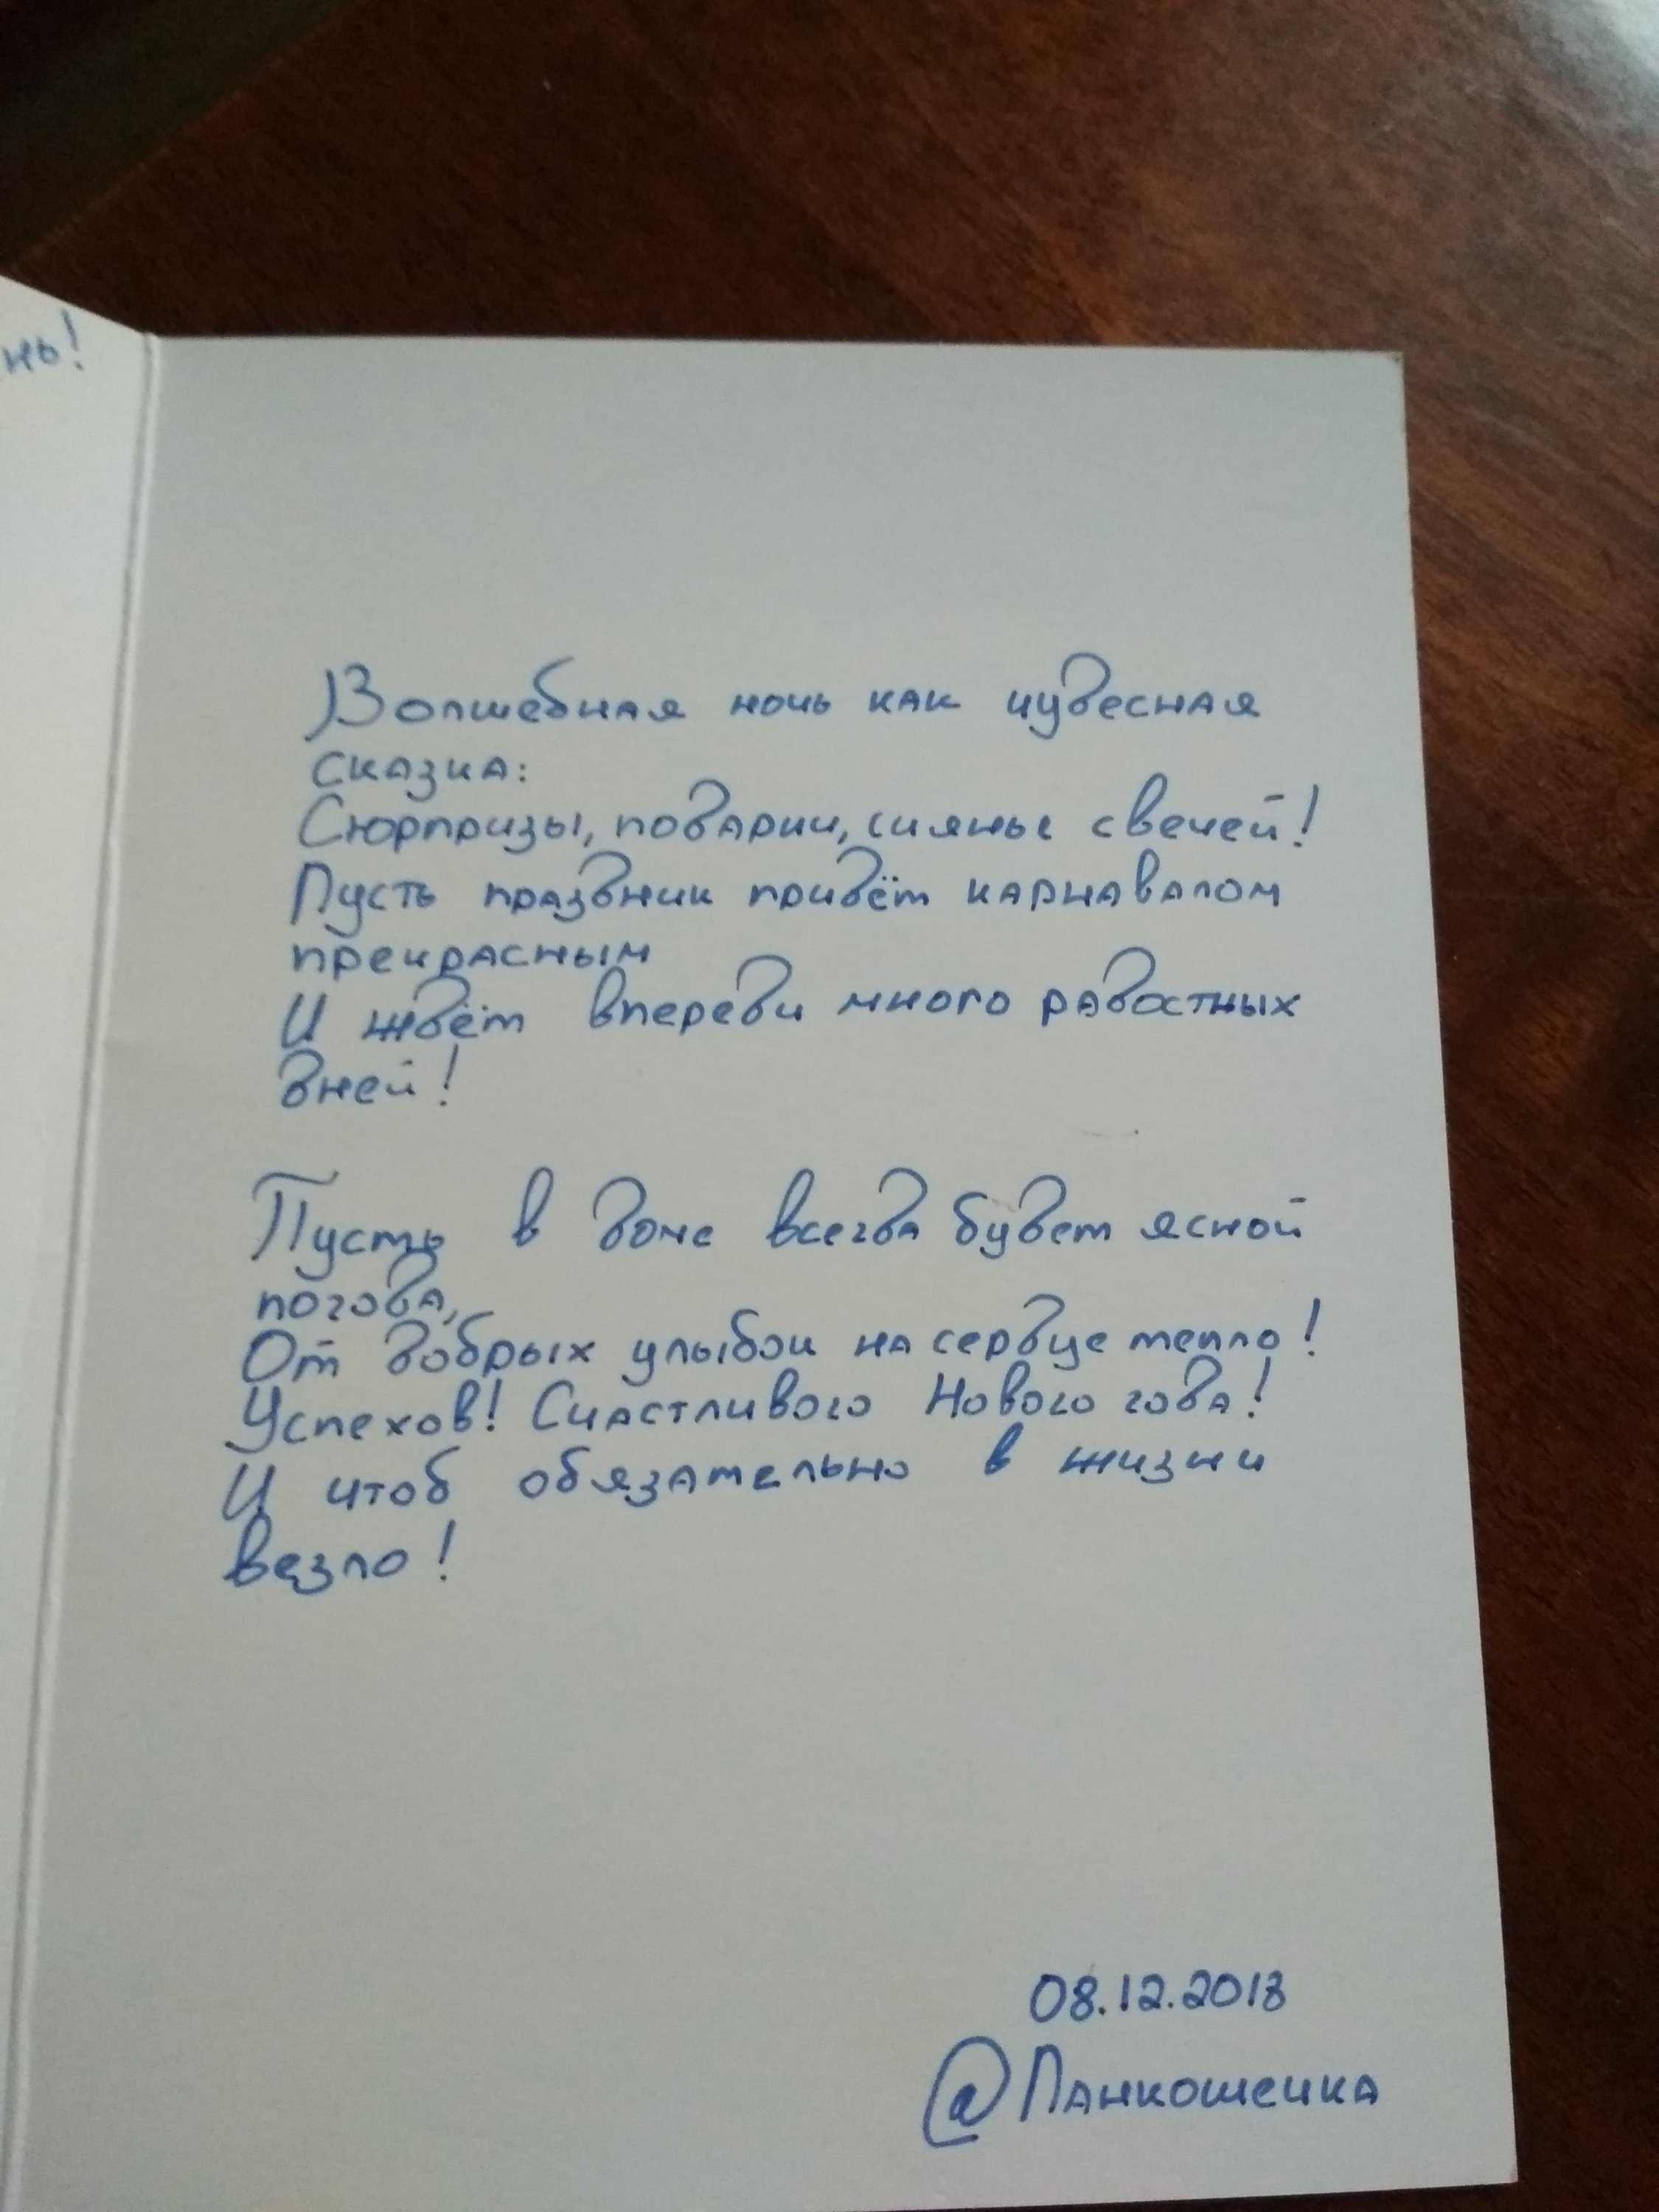 нь!
Волшебная ночь как чудесная
сказка:
Сюрпризы, подарки, сиянье свечей!
Пусть праздник придёт карнавалом
прекрасным
И ждёт впереди много радостных
дней!
Пусть в доме всегда будет ясной
погода,
От добрых улыбок на сердце тепло!
Успехов! Счастливого Нового года!
И чтоб обязательно в жизни
везло!
08.12.2018
@Панкошечка